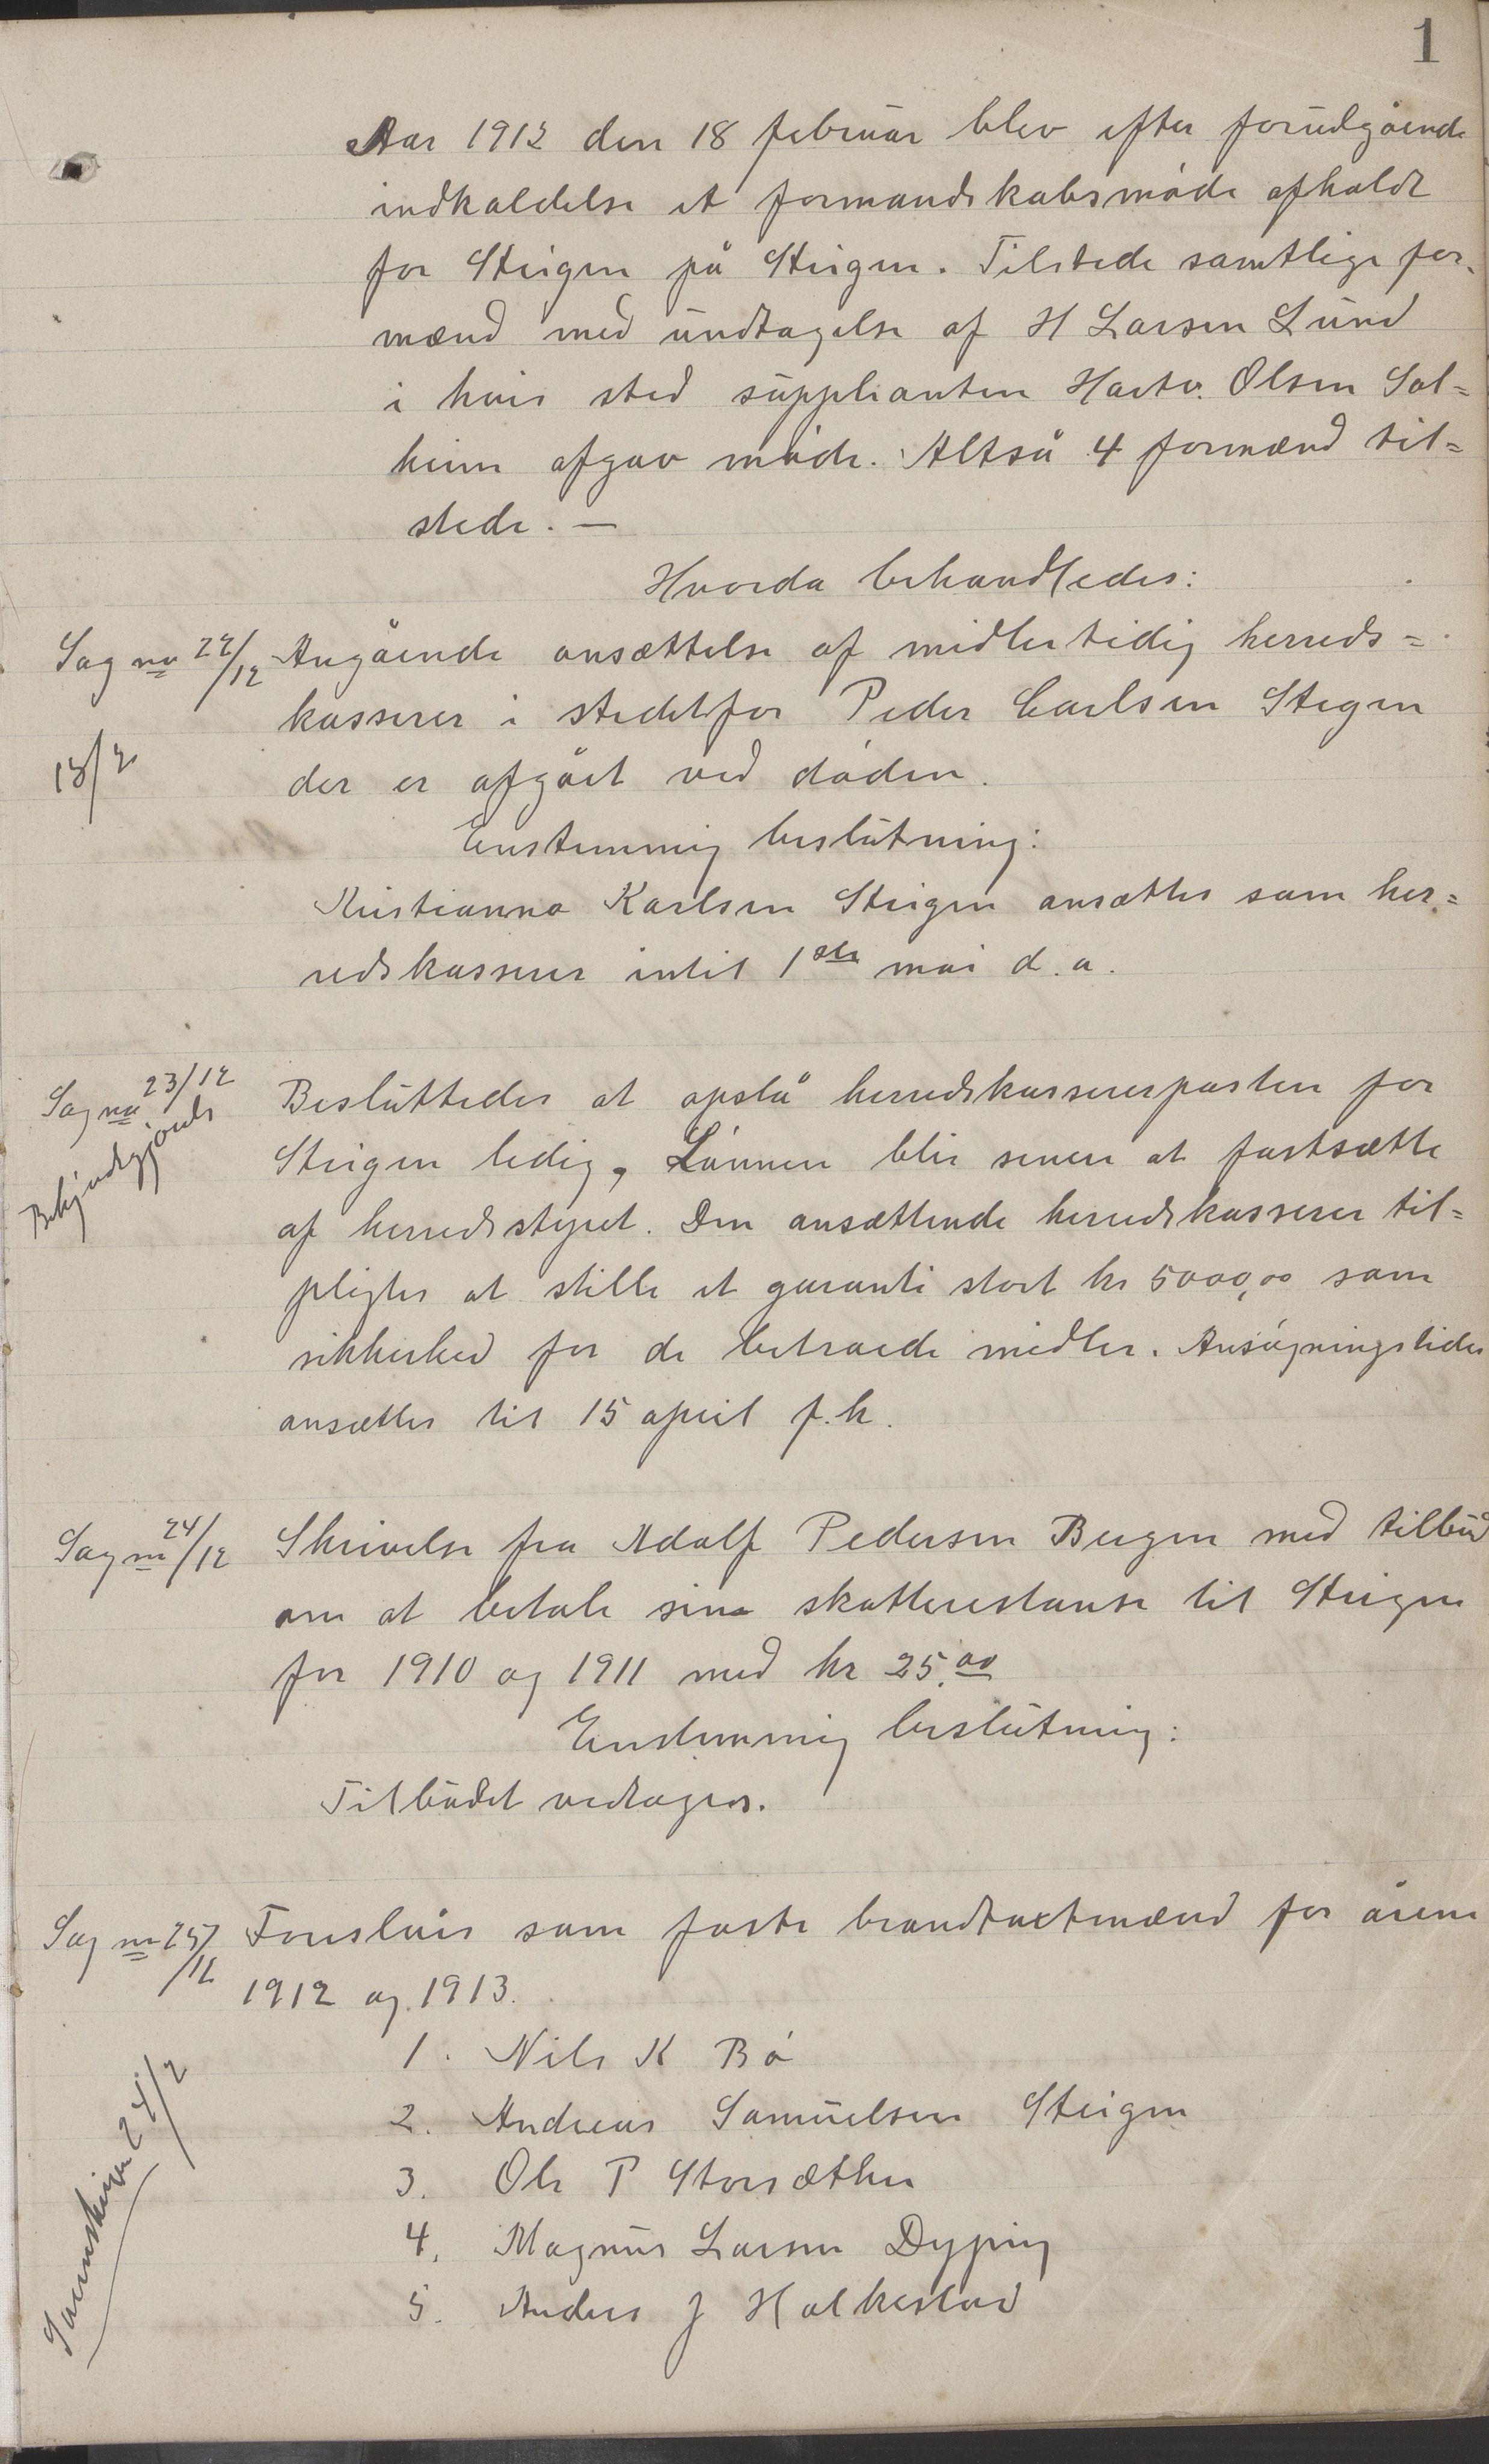 1
Aar 1912 den 18 februar blev efter forudgående
indkaldelse et formandskabsmøde afholdt
for Steigen på Steigen. Tilstede samtlige for-
mænd med undtagelse af H Larsen Lund
i hvis sted supplianten Hartv. Olsen Sol=
heim afgav møde. Altså 4 formænd til=
stede. —
Hvorda behandledes:
Sag no 22/12 Angående ansættelse af midlertidig herreds=
kasserer i stedetfor Peder Carlsen Stegen
13/2
der er afgået ved døden.
Enstemmig beslutning:
Kristianna Karlsen Steigen ansættes som her=
redskasserer intil 1ste mai d.a.
Sag no 23/12 Besluttedes at opslå herredskassererposten for
Bekjendtgjords
Steigen ledig, Lønnen blir senere at fastsætte
af herredsstyret. Den ansættende herredskasserer til=
pligtes at stille et garanti stort kr 5000,00 som
sikkerhed for de betroede midler. Ansøgningstiden
ansættes til 15 april f.k.
Sag no 24/12 Skrivelse fra Adolf Pedersen Bergen med tilbud
om at betale sine skatterestanse til Steigen
for 1910 og 1911 med kr 25.00
Enstemmig beslutning:
Tilbudet vedtages.
Sag no 25/12 Foreslåes som faste brandtaxtmænd for årene
1912 og 1913.
24/2
1. Nils K Bø
2. Andreas Samuelsen Steigen
3. Ole P Storsæther
4. Magnus Larsen Dyping
5. Anders J Holkestad